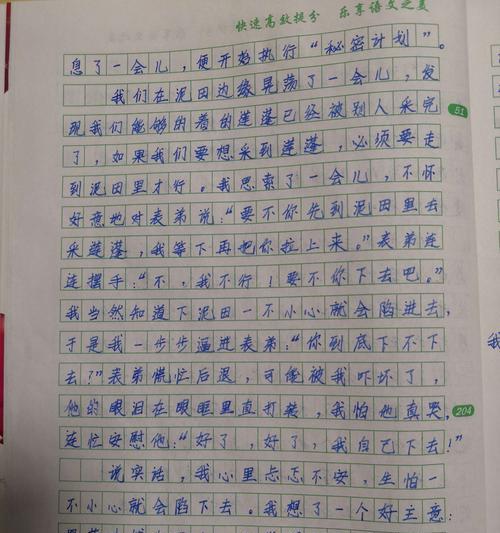 快速高效提分 乐享语文之美
息了一会儿，便开始执行“秘密计划”。
我们在泥田边缘晃荡了一会儿，发
现我们能够的着的莲蓬已经被别人采完
了，如果我们要想采到莲蓬，必须要走
到泥田里才行。我思索了一会儿，不怀
好意地对表弟说：“要不你先到泥田里去
采莲蓬，我等下再把你拉上来。”表弟连
连摆手：“不，我不行！要不你下去吧。”
我当然知道下泥田一不小心就会陷进去，
于是我一步步逼进表弟：“你到底下不下
去？”表弟慌忙后退，可能被我吓坏了，
他的眼泪在眼眶里直打转，我怕他真哭，
连忙安慰他：“好了，好了，我自己下去！”
说实话，我心里忐忑不安，生怕一
不小心就会陷下去。我想了一个好主意：
51
204
我